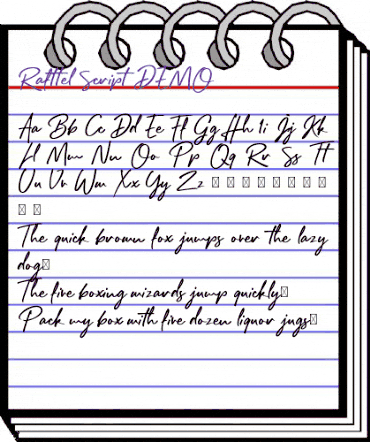 Rafttel Script DEMO
Aa Bb Cc Dd Ee Ff Gg Hh Ii Jj Kk
Ll Mm Nn Oo Pp Qq Rr Ss Tt
Uu Vv Ww Xx Yy Zz □ □ □ □ □ □ □ □
□ □
The quick brown fox jumps over the lazy
dog□
The five boxing wizards jump quickly□
Pack my box with five dozen liquor jugs□